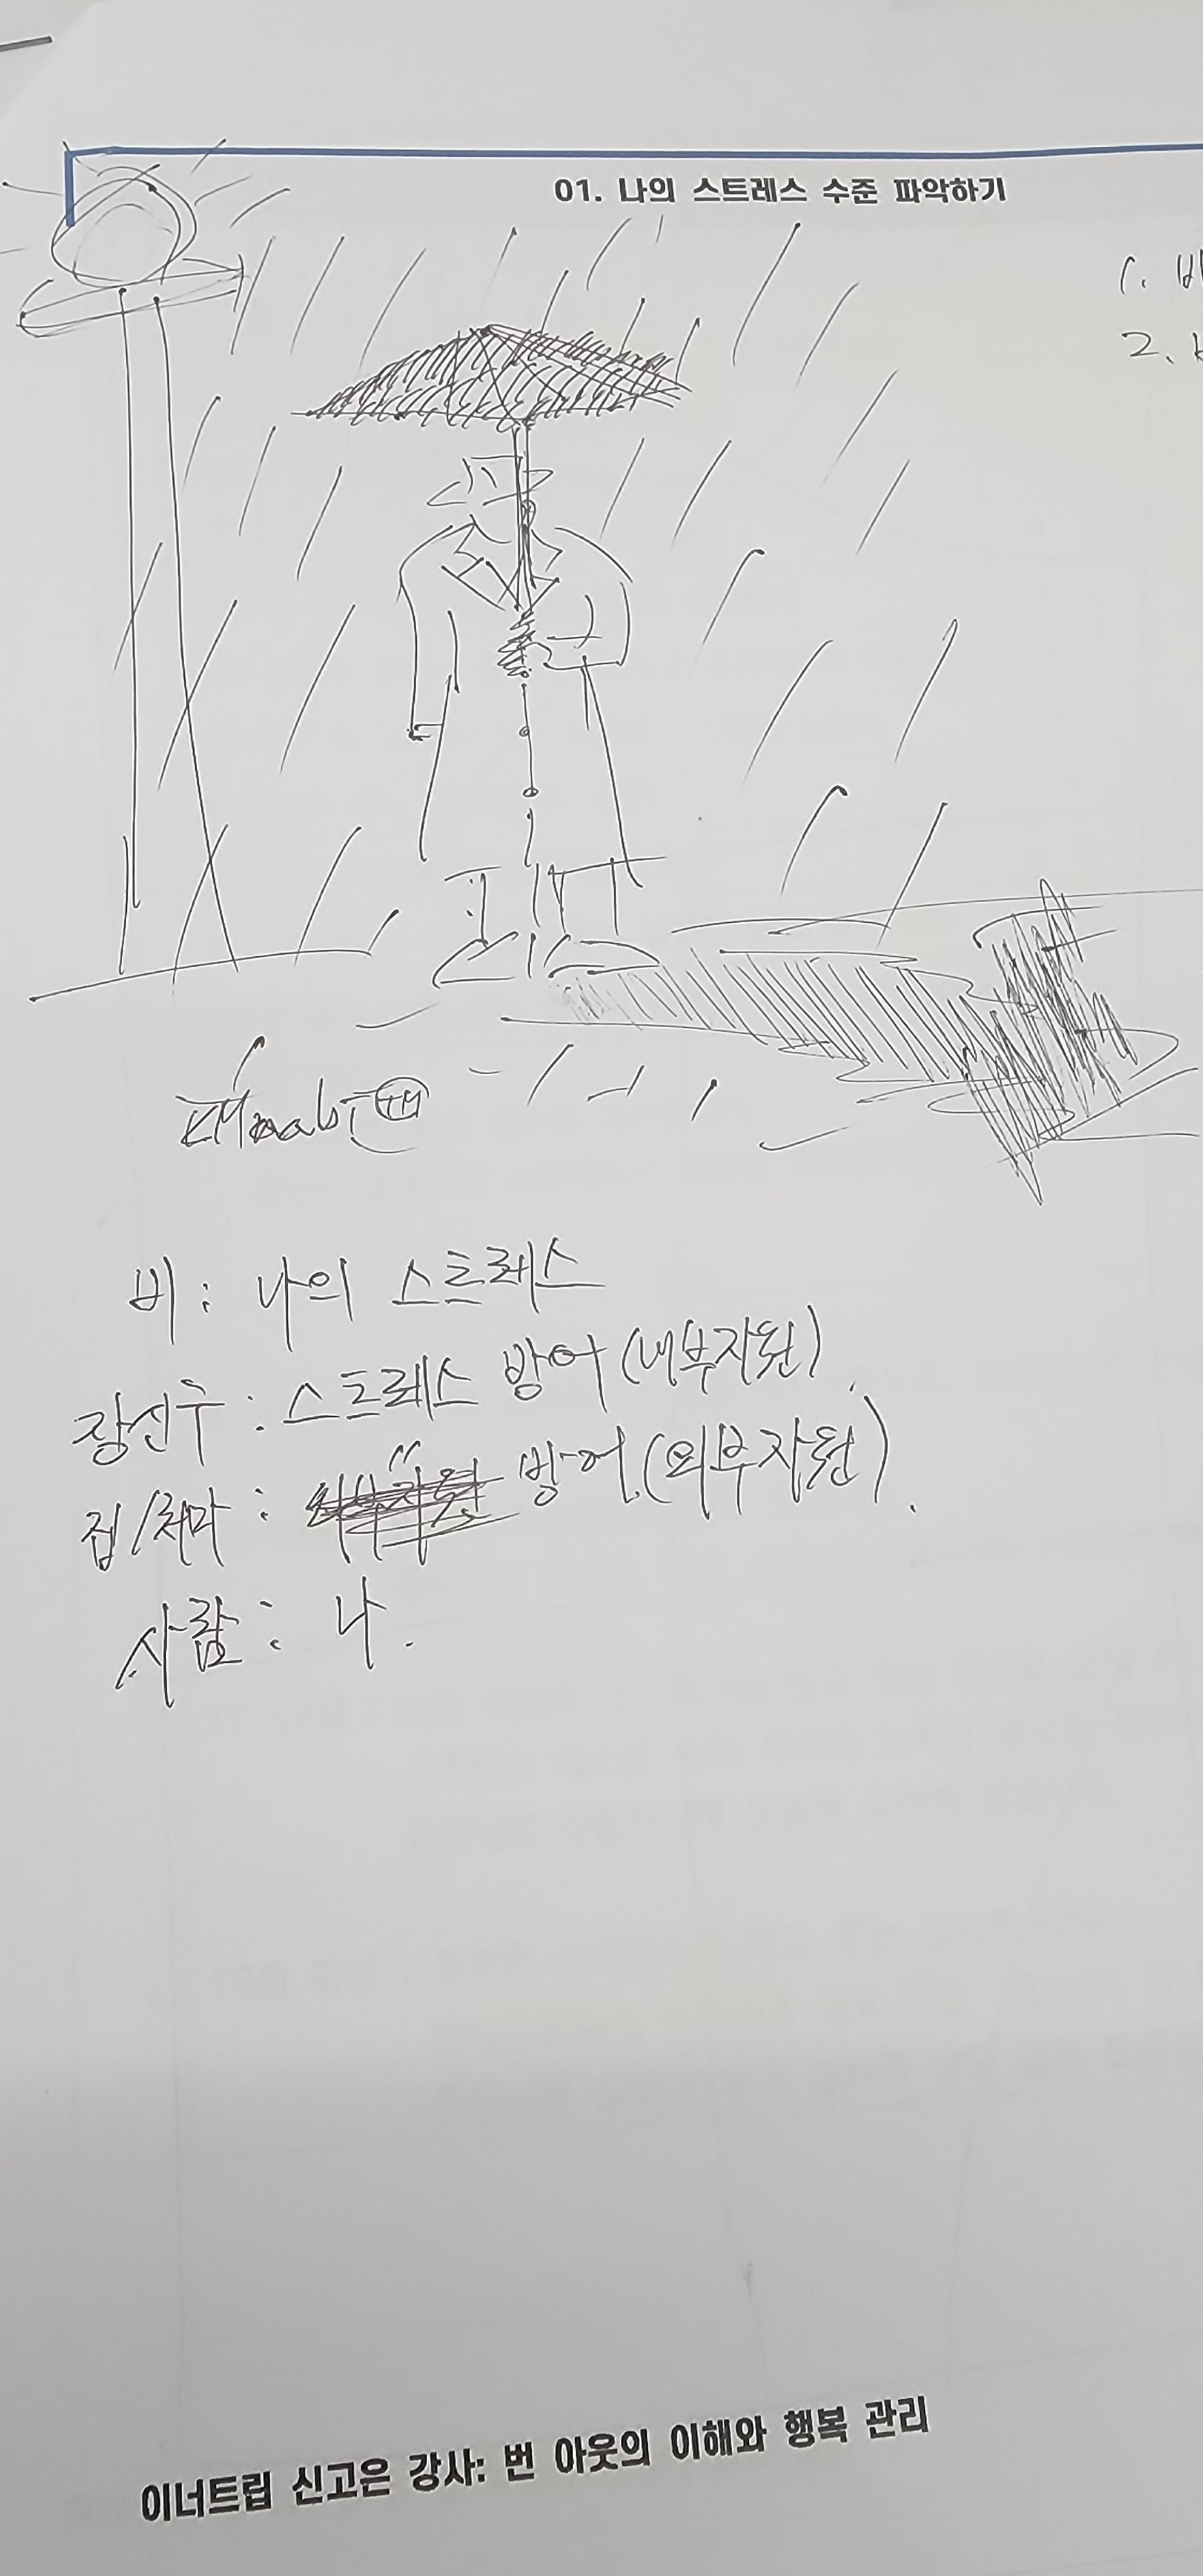 01. 나의 스트레스 수준 파악하기
1. 비
2.
비 : 나의 스트레스
장신구 : 스트레스 방어 (내부자원).
집/처마 : 〃 방어. (외부자원).
사람 : 나.
이너트립 신고은 강사: 번 아웃의 이해와 행복 관리